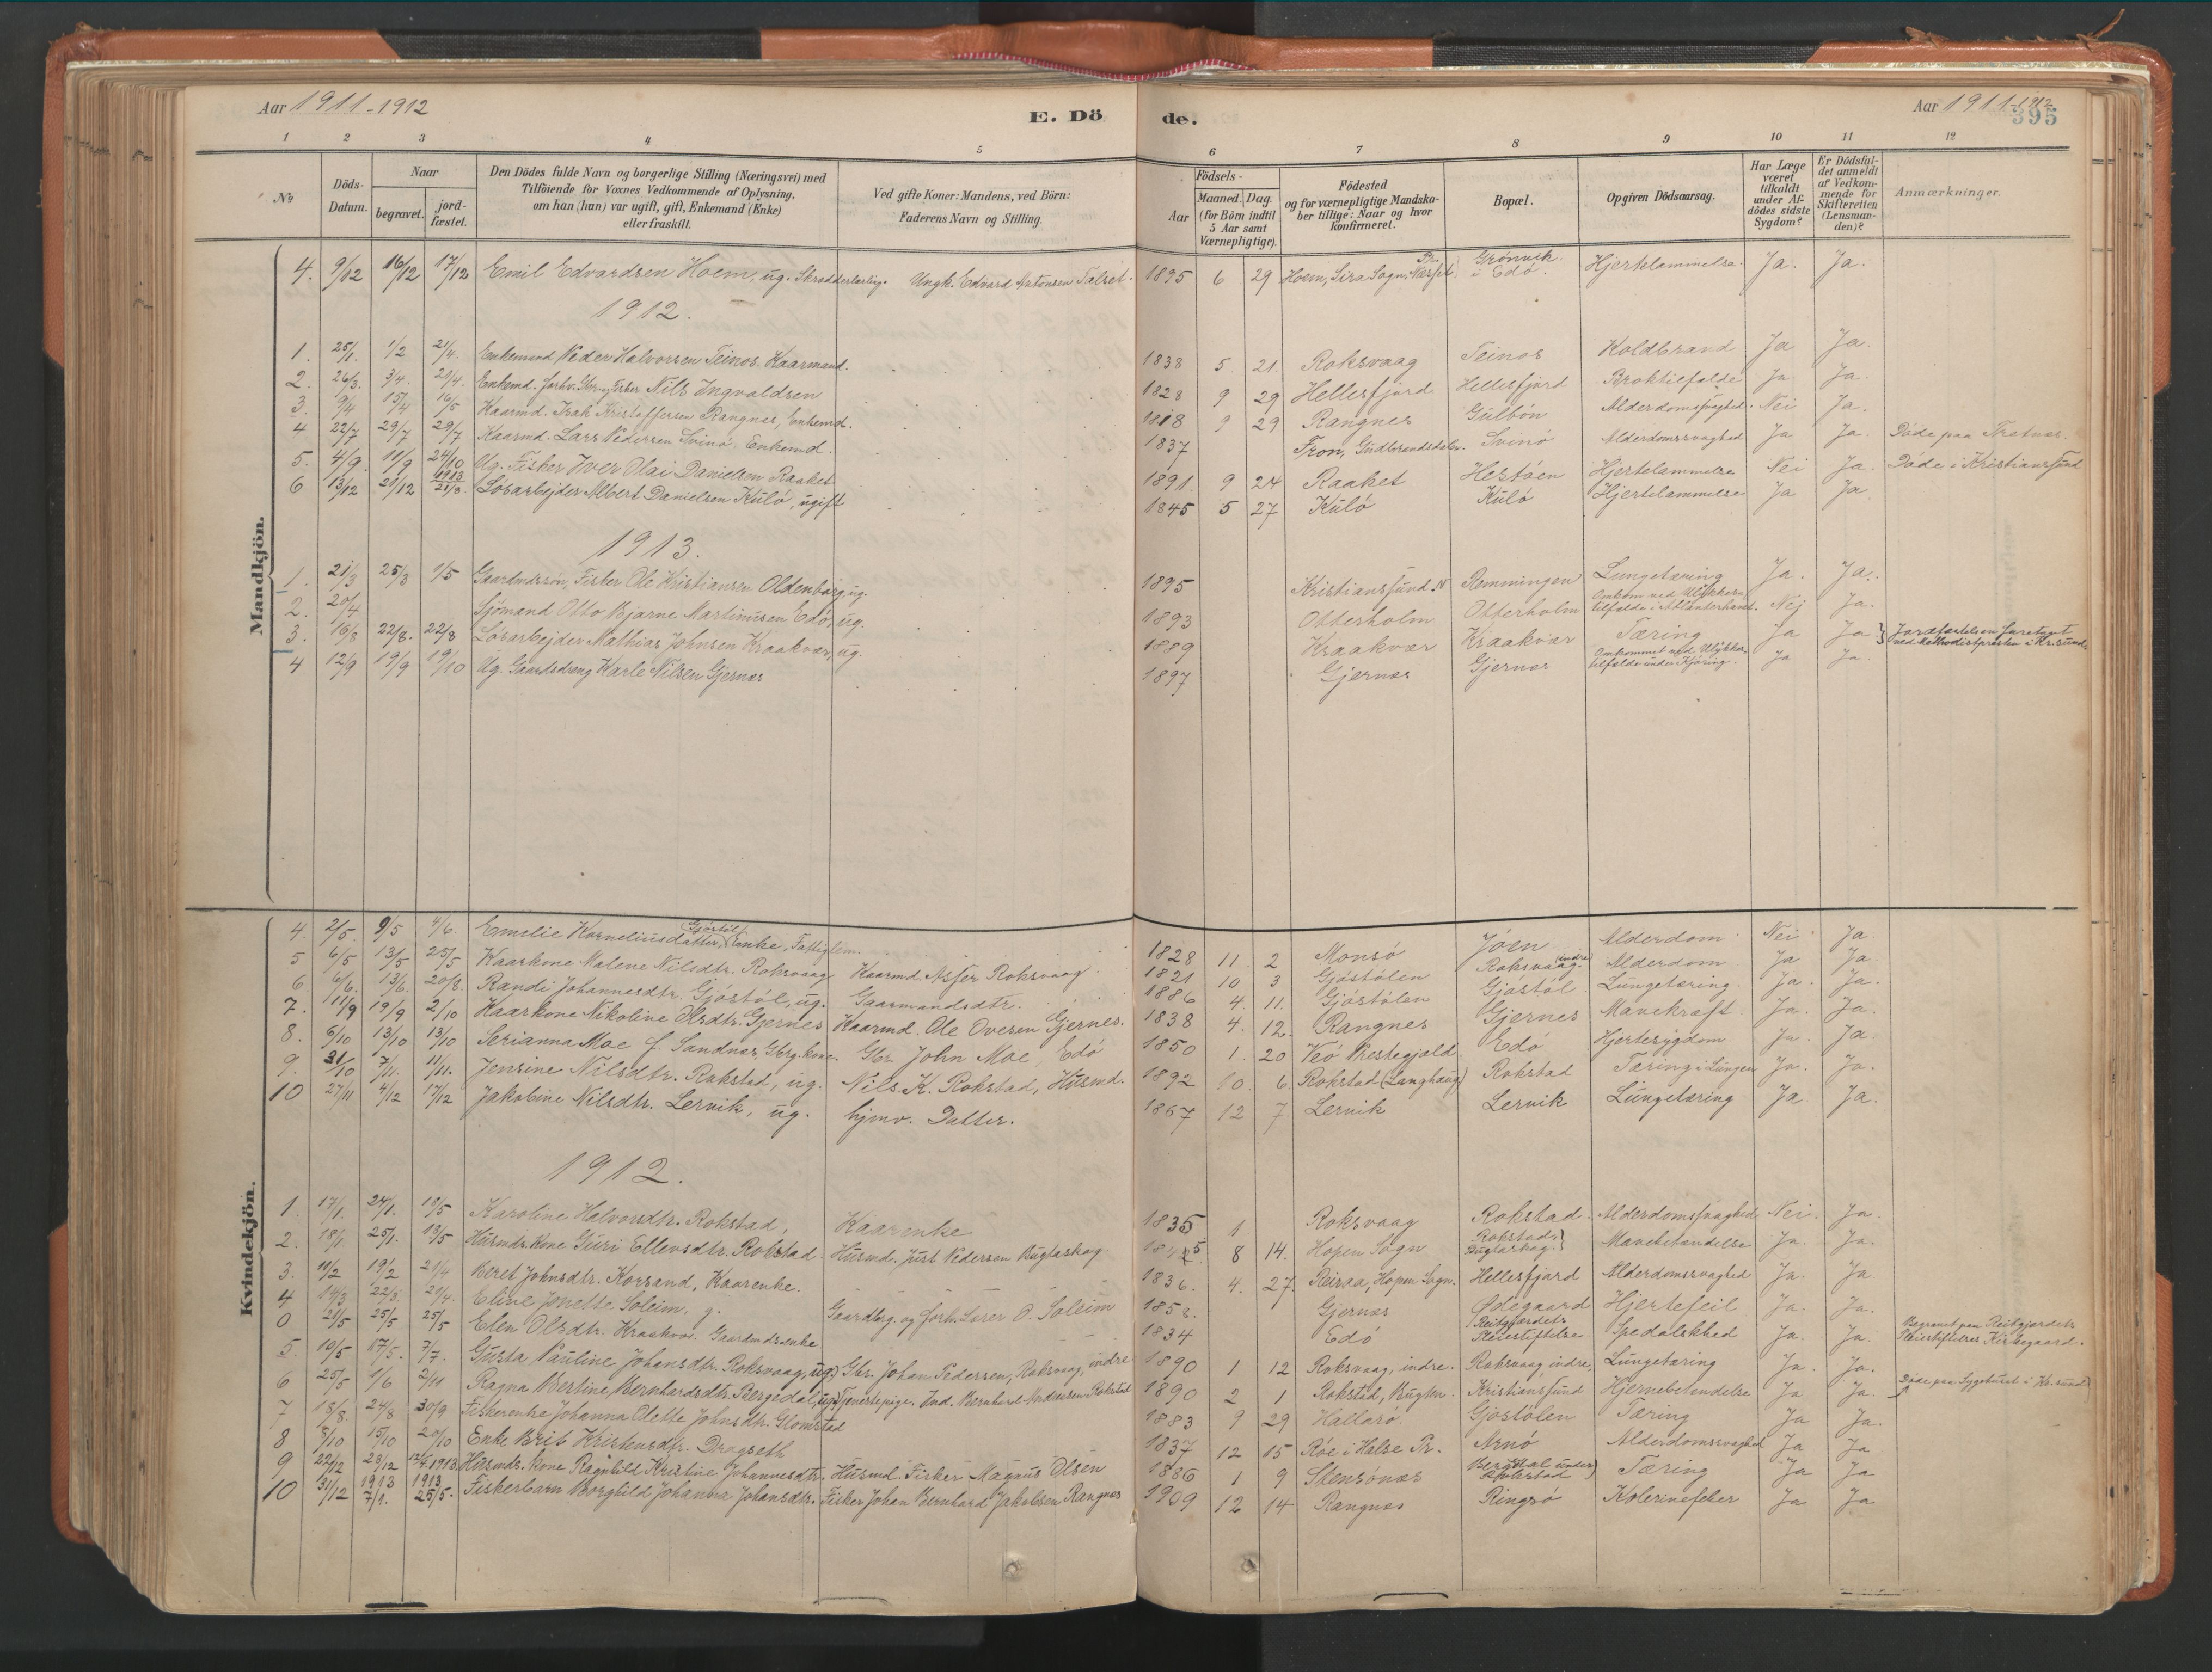 Aar 1911-1912
E. Dö
de.
Aar 1911-1912
395
1 2 3 4 5 6 7 8 9 10 11 12
№
Döds-Datum.
Naar
begravet.
jord-fæstet.
Den Dödes fulde Navn og borgerlige Stilling (Næringsvei) med
Tilföiende for Voxnes Vedkommende af Oplysning,
om han (hun) var ugift, gift, Enkemand (Enke)
eller fraskilt.
Ved gifte Koner: Mandens, ved Börn:
Faderens Navn og Stilling.
Födsels-
Aar
Maaned. Dag.
(for Börn indtil
5 Aar samt
Værnepligtige).
Födested
og for værnepligtige Mandska-
ber tillige: Naar og hvor
konfirmeret.
Bopæl.
Opgiven Dödsaarsag.
Har Læge
været
tilkaldt
under Af-
dödes sidste
Sygdom?
Er Dödsfal-
det anmeldt
af Vedkom-
mende for
Skifteretten
(Lensman-
den)?
Anmærkninger.
Mandkjön.
4. 9/12 16/12 17/12 Emil Edvardsen Hoem, ug. Skrædderlærling. Ungk. Edvard Antonsen Talset. 1895 6 29 Hoem, Sira Sogn, Nesset Pr. Grönvik i Edö. Hjertelammelse. Ja. Ja.
1912.
1. 25/1. 1/2 21/4. Enkemand Peder Halvorsen Teinos. Kaarmand. 1838 5 21 Roksvaag Teinos Koldbrand Ja Ja.
2. 26/3. 3/4. 29/4. Enkemd. forhv. Gbr. og Fisker Nils Ingvaldsen 1828 9 29 Hellesfjord Hellesfjord Broktilfælde Ja Ja.
3. 9/4 15/4 16/5 Kaarmd. Isak Kristoffersen Rangnes, Enkemd. 1818 9 29 Rangnes Gulbön Alderdomssvaghed. Nei Ja.
4 22/7 29/7 29/7 Kaarmd. Lars Pedersen Svinö, Enkemd. 1837 Fron, Gudbrandsdalen. Svinö Alderdomssvaghed Ja Ja. Döde paa Thetnes.
5. 4/9. 11/9 24/10 Ug. Fisker Iver Olai Danielsen Raaket 1891. 9 24 Raaket Hestöen Hjertelammelse Nei Ja. Döde i Kristianssund
6 13/12 20/12 1913 21/3. Lösarbejder Albert Danielsen Kulö, ugift 1845 5 27 Kulö Kulö Hjertelammelse Ja Ja
1913.
1. 21/3 25/3 1/5 Gaardmdssön, Fisker Ole Kristiansen Oldenborg, ug. 1895 Kristianssund N Remmingen Lungetæring Ja. Ja.
2. 20/4 Sjömand Otto Bjarne Martinusen Edö, ug. 1893 Otterholm Otterholm Omkom ved Ulykkes-tilfælde i Atlanterhavet. Nej Ja.
3. 16/8 22/8. 22/8 Lösarbejder Mathias Johnsen Kraakvær, ug. 1889 Kraakvær Kraakvær Tæring Ja Ja } Jordfæstelsen foretaget ved Methodistpresten i Kr.sund.
4 12/9 19/9 19/10 Ug. Gaardsdreng Karle Nilsen Gjernes 1897 Gjernes Gjernes Omkommet ved Ulykkes-tilfælde under Kjöring. Ja Ja
Kvindekjön.
4. 2/5. 9/5 4/6. Emelie Korneliusdatter, Gjöstöl, Enke, Fattiglem. 1828 11 2 Monsö Jöen Alderdom. Nei Ja.
5 6/5 13/5 25/5 Kaarkone Malene Nilsdtr. Roksvaag Kaarmd. Asser Roksvaag. 1821 10 3 Gjöstölen Roksvaag (indre) Alderdom Ja Ja.
6. 6/6. 13/6. 20/8. Randi Johannesdtr. Gjöstöl, ug. Gaarmandsdtr. 1886 4 11. Gjöstölen Gjöstöl. Lungetæring. Ja. Ja.
7. 11/9 19/9 2/10 Kaarkone Nikoline Olsdtr. Gjernes Kaarmd. Ole Ovesen Gjernes. 1838 4. 12. Rangnes Gjernes Mavekræft. Ja. Ja.
8. 6/10 13/10 13/10 Serianna Moe f. Sandnes, Gbrg.kone. Gbr. John Moe Edö 1850 1. 20 Veö Prestegjeld Edö Hjertesygdom. Ja. Ja.
9. 31/10 7/11. 11/11. Jensine Nilsdtr. Rokstad, ug. Nils K. Rokstad, Husmd. 1892 10. 6. Rokstad (Langhaug) Rokstad Tæring i Lungen Ja. Ja.
10 27/11 4/12 17/12 Jakobine Nilsdtr. Lervik, ug. hjmv. Datter. 1867 12 7 Lervik Lervik Lungetæring Ja. Ja.
1912.
1. 17/1. 24/1. 13/5 Karoline Halvorsdtr. Rokstad, Kaarenke 1835 1 Roksvaag Rokstad. Alderdomssvaghed Nei. Ja.
2. 18/1 25/1. 13/5 Husmds. Kone Guri Ellevsdtr. Rokstad. Husmd. Just Pedersen Bugtaskag 8 14. Hopen Sogn Rokstad, Bugtaskag.} Mavebetændelse Ja. Ja.
3. 11/2 19/2 21/4 Beret Johnsdtr. Korsand, Kaarenke. 1836. 4. 27. Reiraa, Hopen Sogn. Hellesfjord Alderdomssvaghed Ja. Ja.
4 14/3 22/3. 29/4. Eline Jonette Soleim, g. Gaardbrg. og forh. Larer O. Soleim Gjernes Ødegaard Hjertefeil Ja. Ja.
0 21/5 25/5 25/5 Elen Olsdtr. Kraakvær Gaardmdsenke 1834 Edö Reitgjærdets Pleiestiftelse Spedalskhed Ja. Ja. Begravet paa Reitgjærdets Pleiestiftelses Kirkegaard.
5. 10/5 17/5. 7/7. Gusta Pauline Johansdtr. Roksvaag, ug.) Gbr. Johan Pedersen, Roksvaag, indre 1890 1 12 Roksvaag, indre. Roksvaag, indre. Lungetæring Ja. Ja.
6 25/5 1/6 2/11 Ragna Bertine Bernhardsdtr. Bergedal, ug.) Tjenestepige. Ind. Bernhard Andreassen Rokstad 1890 2 1 Rokstad, Bugten. Kristianssund Hjernebetendelse Ja Ja. Döde paa Sygehuset i Kr.sund.
7 18/8. 24/8 30/9 Fiskerenke Johanna Olette Johnsdtr. Glomstad 1883 9 29 Hallarö Gjöstölen Tæring Ja Ja.
8 8/10 15/10 20/10 Enke Brit Kristensdtr. Dragseth 1837 12 15 Röe i Halse Pr. Arnö Alderdomssvaghed Ja Ja
9 22/12 28/12 1913. Husmds. kone Ragnhild Kristine Johannesdtr. Husmd. Fisker Magnus Olsen 1886 1 9 Stensönes Bergdal under Rokstad Tæring Ja Ja
10 31/12 1913 7/1. 1913 25/5. Fiskerbarn Borghild Johanna Johansdtr. Fisker Johan Bernhard Jakobsen Rangnes 1909 12 14 Rangnes Ringsö Kolerinefeber Ja Ja